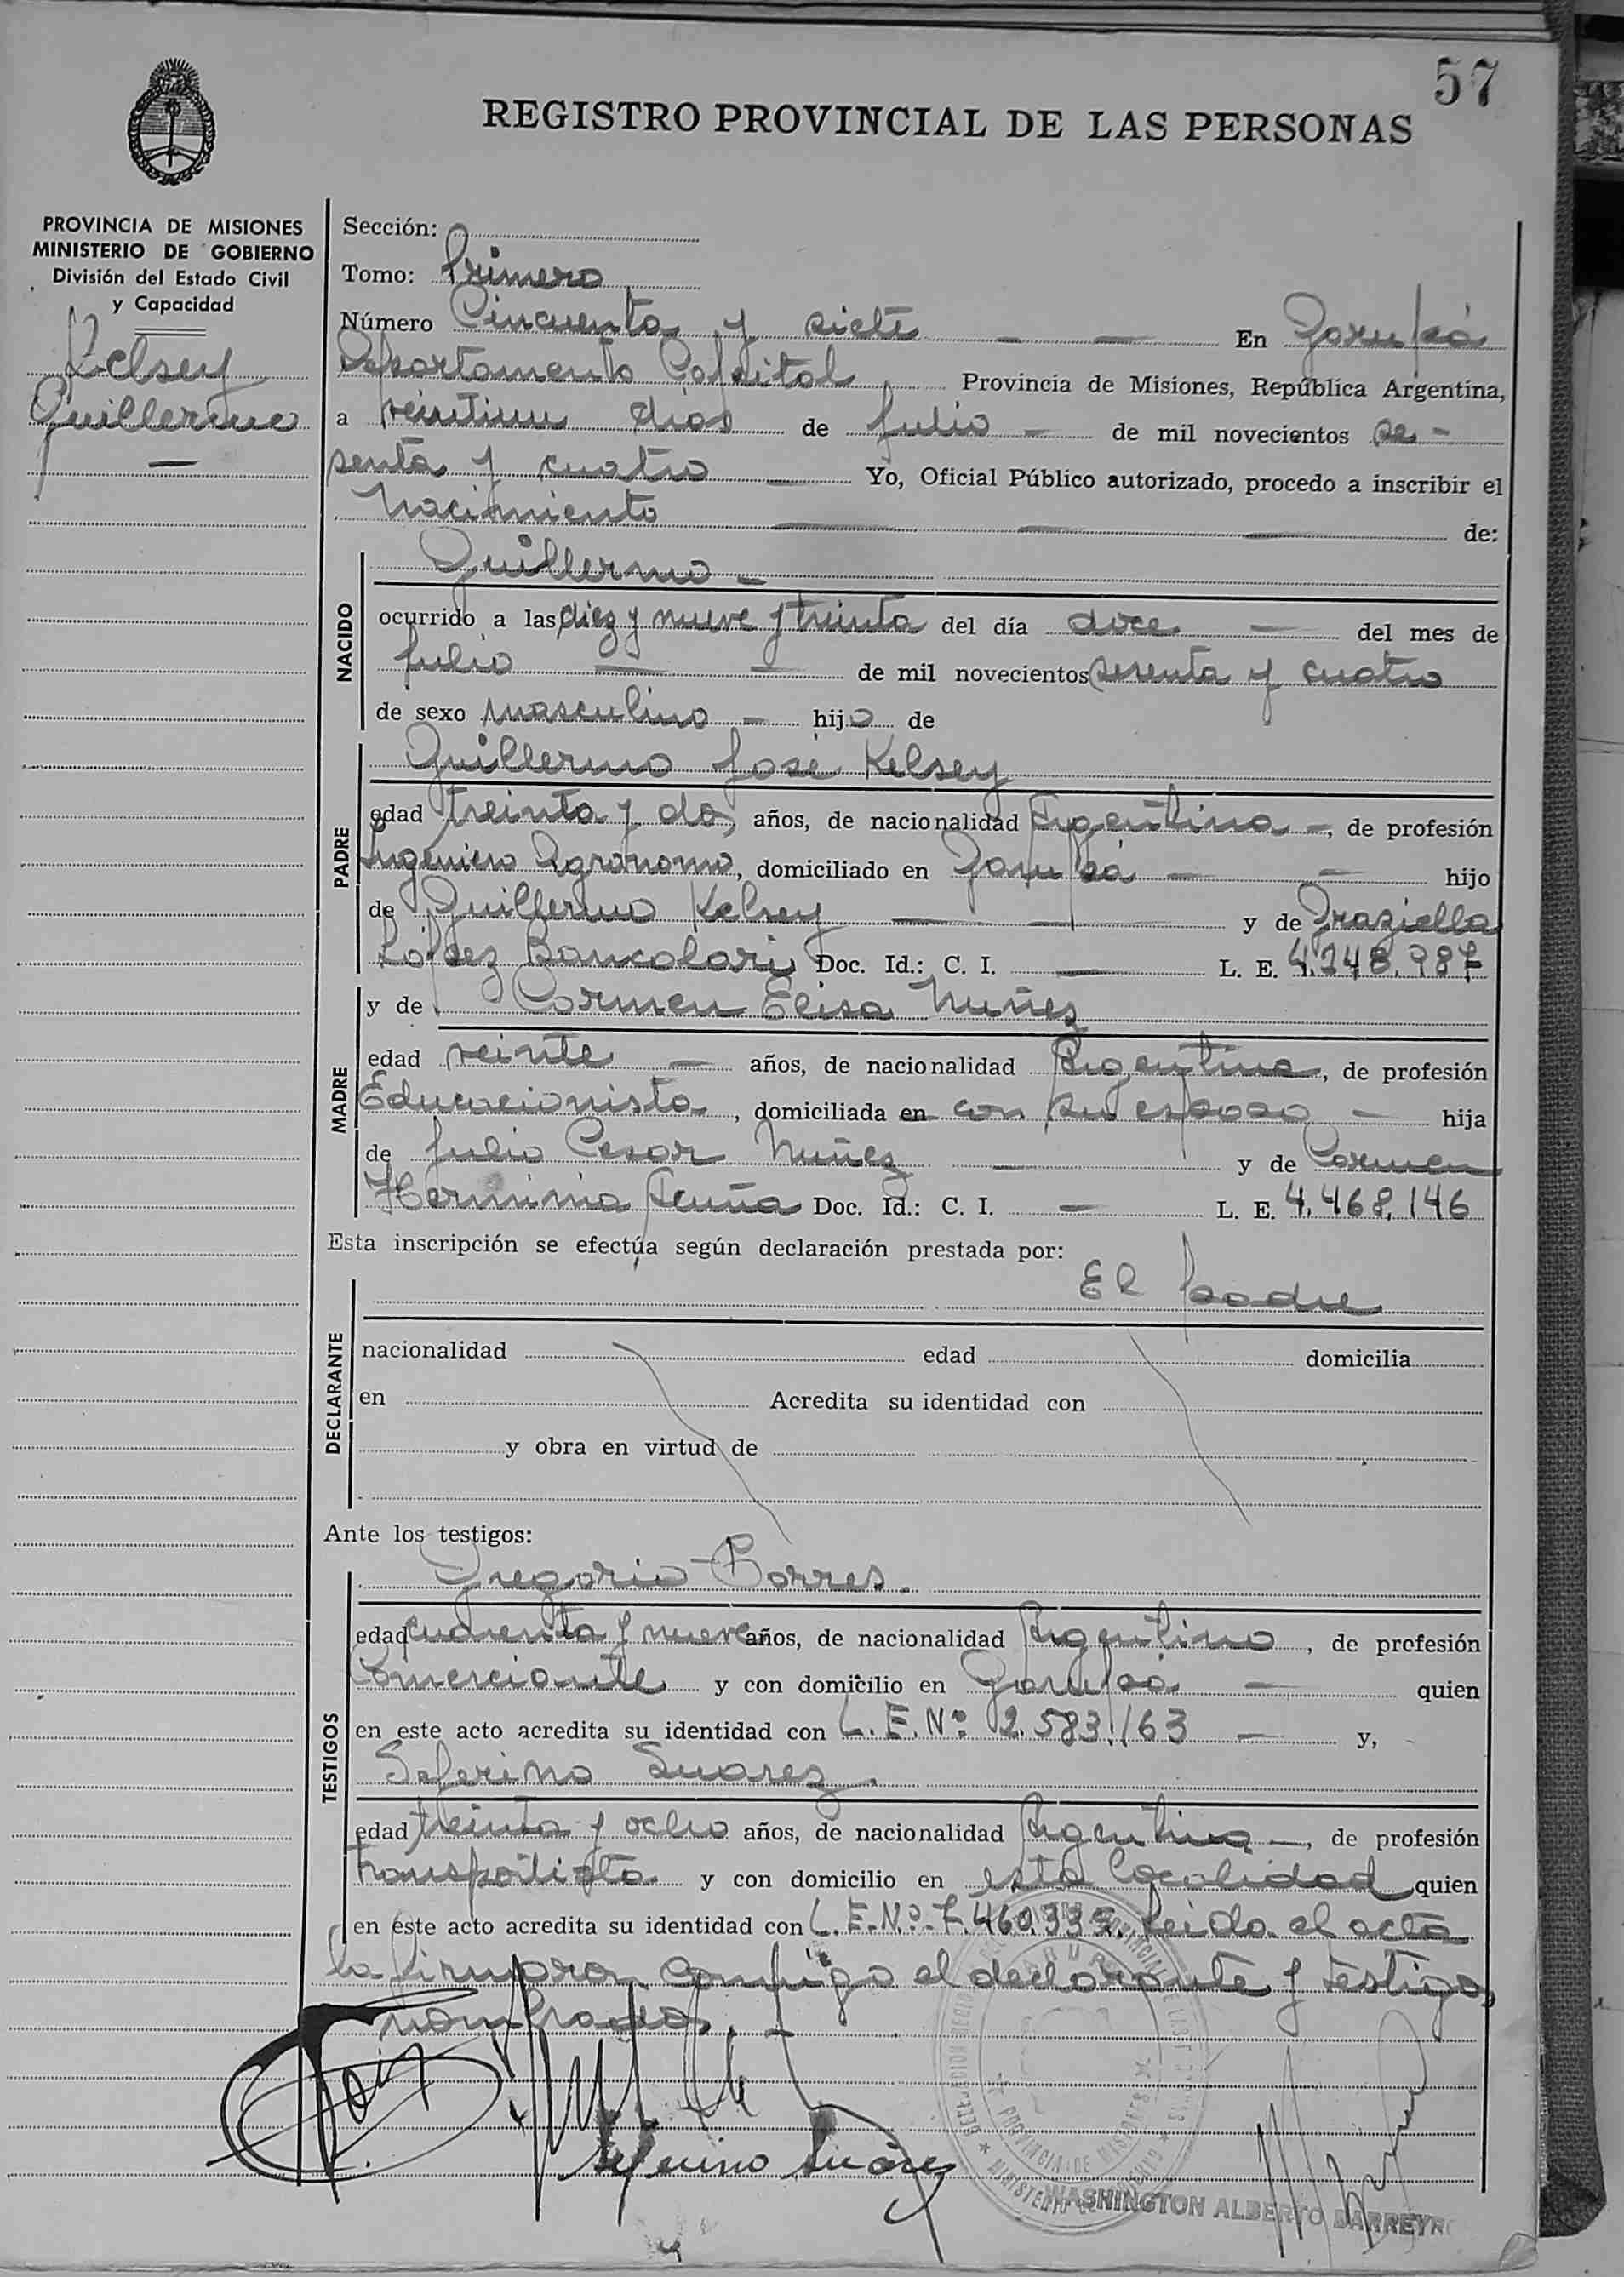 57
REGISTRO PROVINCIAL DE LAS PERSONAS
PROVINCIA DE MISIONES
MINISTERIO DE GOBIERNO
División del Estado Civil
y Capacidad
Kelsey
Guillermo
Sección:
Tomo: Primero
Número Cincuenta y siete En Garupá
Departamento Capital Provincia de Misiones, República Argentina,
a veintiun dias de Julio de mil novecientos se-
senta y cuatro Yo, Oficial Público autorizado, procedo a inscribir el
Nacimiento de:
NACIDO
Guillermo
ocurrido a las diez y nueve y treinta del día doce del mes de
Julio de mil novecientos sesenta y cuatro
de sexo masculino hijo de
PADRE
Guillermo José Kelsey
edad treinta y dos años, de nacionalidad Argentina, de profesión
Ingeniero Agronomo, domiciliado en Garupá hijo
de Guillermo Kelsey y de Graziella
López Bancolari Doc. Id.: C. I. L. E. 4.248.987
MADRE
y de Carmen Elisa Nuñez
edad veinte años, de nacionalidad Argentina, de profesión
Educacionista, domiciliada en con su esposo hija
de Julio Cesar Nuñez y de Carmen
Herminia Acuña Doc. Id.: C. I. L. E. 4.468.146
Esta inscripción se efectúa según declaración prestada por:
El padre
DECLARANTE
nacionalidad edad domicilia
en Acredita su identidad con
y obra en virtud de
Ante los testigos:
TESTIGOS
Gregorio Torres.
edad cuarenta y nueve años, de nacionalidad Argentino, de profesión
Comerciante y con domicilio en Garupá quien
en este acto acredita su identidad con L. E. Nº 2.583.163 y,
Seferino Suarez.
edad treinta y ocho años, de nacionalidad Argentina, de profesión
transportista y con domicilio en esta localidad quien
en este acto acredita su identidad con L. E. Nº 7.460.335. Leida el acta
la firmaron conmigo el declarante y testigos
nombrados.
Seferino Suárez
PROVINCIA DE MISIONES
WASHINGTON ALBERTO BARREYRO